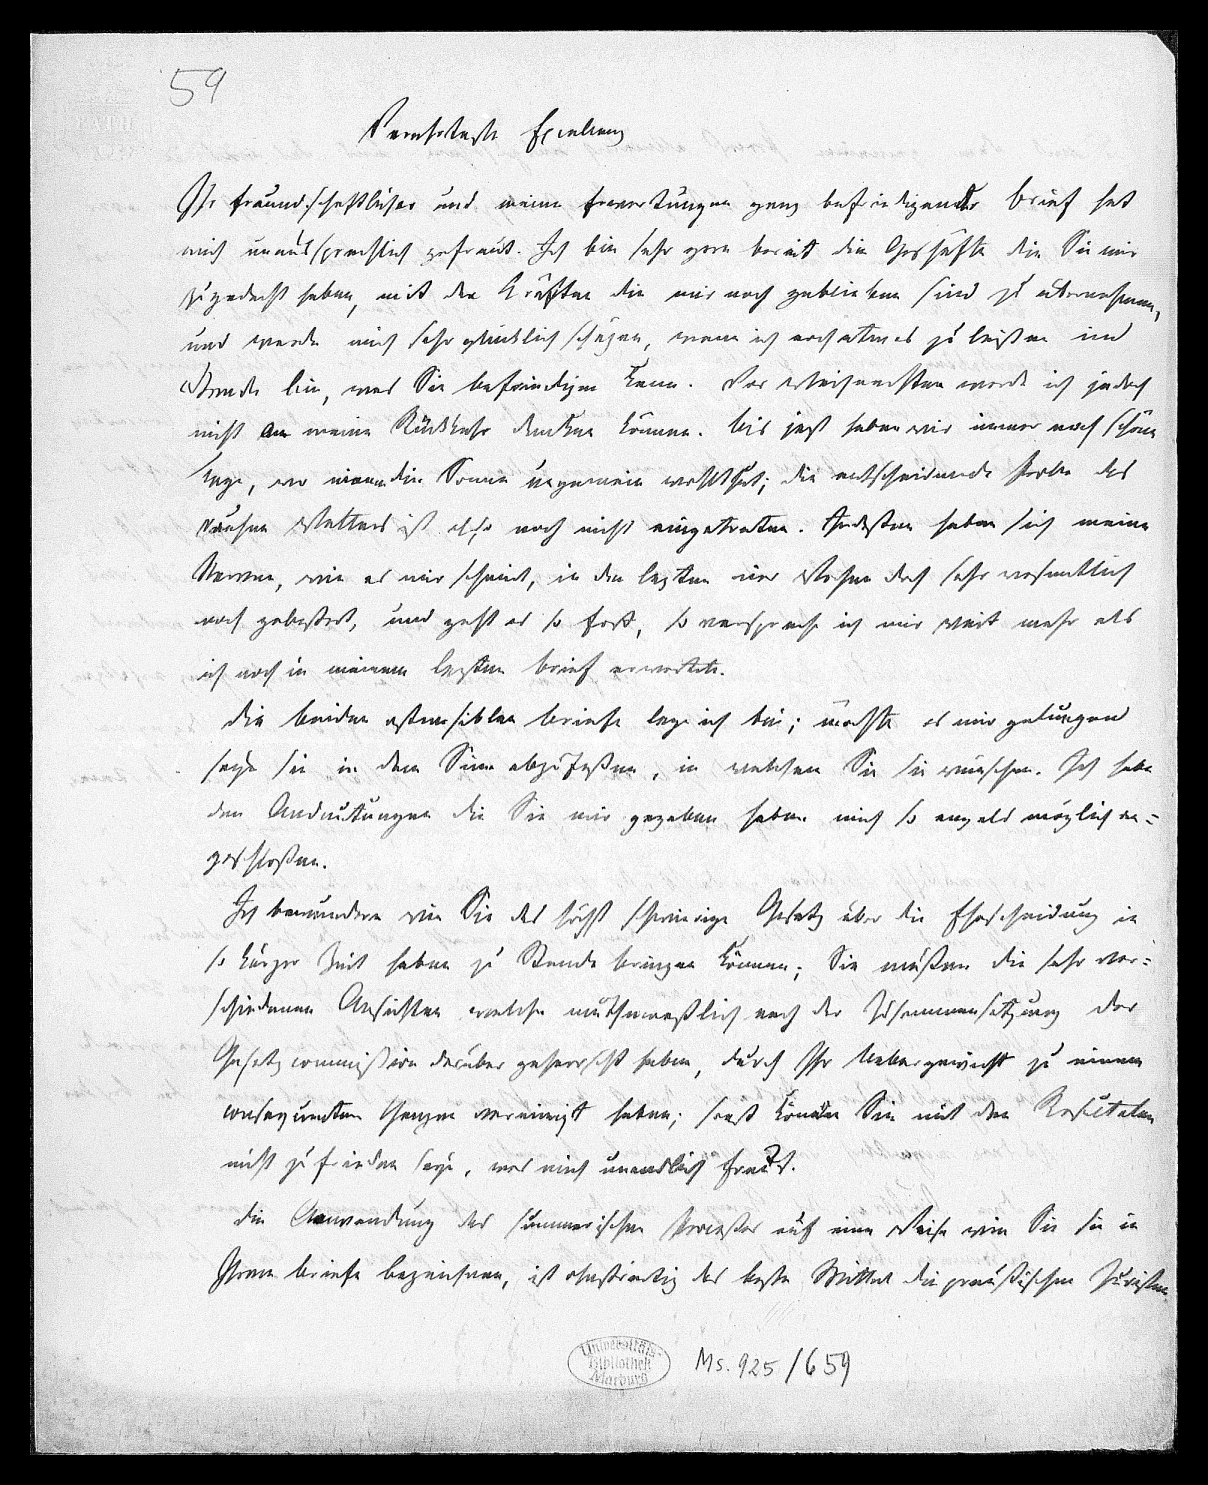 59
Verehrteste Excellenz
Ihr freundschaftlicher und meine Erwartungen ganz befriedigender Brief hat
mich unaussprechlich gefreut. Ich bin sehr gern bereit die Geschäfte die Sie mir
zugedacht haben, mit den Kräften die mir noch geblieben sind zu übernehmen,
und werde mich sehr glücklich schäzen, wenn ich noch etwas zu leisten im
Stande bin, was Sie befriedigen kann. Vor Weihnachten werde ich jedoch
nicht an meine Rückkehr denken können. Bis jezt haben wir immer noch schöne
Tage, wo einem die Sonne ungemein wohlthut; die entscheidende Probe des
rauhen Wetters ist also noch nicht eingetreten. Indessen haben sich meine
Nerven, wie es mir scheint, in den lezten vier Wochen doch sehr wesentlich
noch gebessert, und geht es so fort, so verspreche ich mir weit mehr als
ich noch in meinem lezten Brief erwartete.
Die beiden ostensiblen Briefe lege ich bei; möchte es mir gelungen
seyn sie in dem Sinn abzufassen, in welchem Sie sie wünschen. Ich habe
den Andeutungen die Sie mir gegeben haben mich so eng als möglich an=
geschlossen.
Ich bewundere wie Sie das höchst schwierige Gesetz über die Ehescheidung in
so kurzer Zeit haben zu Stande bringen können; Sie müssen die sehr ver=
schiedenen Ansichten welche muthmasslich nach der Zusammensetzung der
Gesetzcommission darüber geherrscht haben, durch Ihr Uebergewicht zu einem
consequenten Ganzen vereinigt haben; sonst könnten Sie mit den Resultaten
nicht zufrieden seyn, was mich unendlich freut.
Die Anwendung des summarischen Processes auf eine Weise wie Sie sie in
Ihrem Briefe bezeichnen, ist ohnstreitig das beste Mittel die preussischen Juristen
Universitäts-
Bibliothek
Marburg
Ms. 925/659